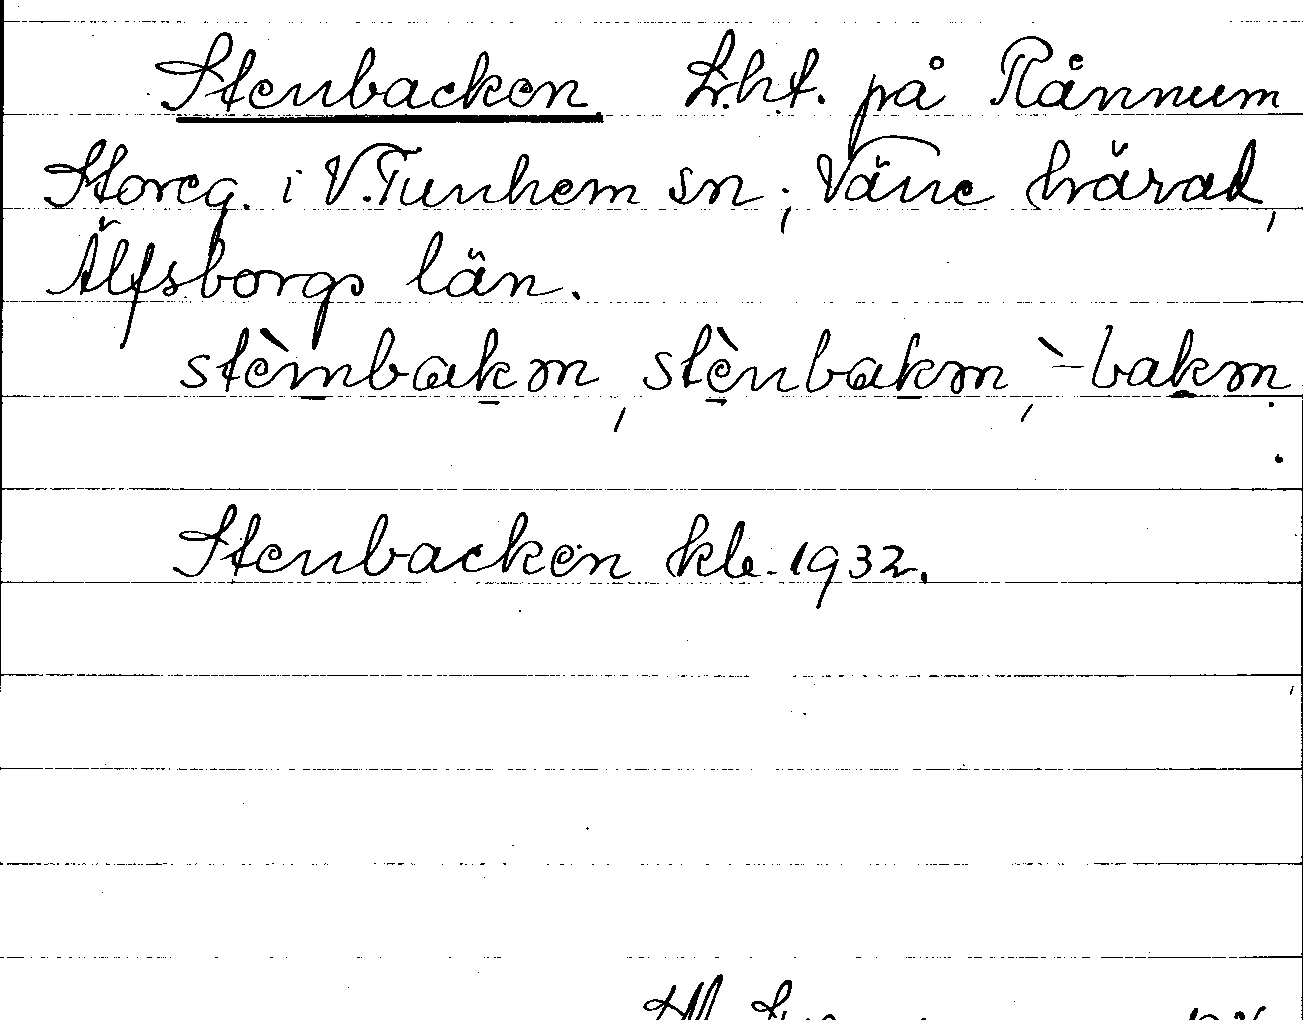 Stenbacken Lht. på Rånnum
Storeg. i V. Tunhem sn, Väne härad,
Älfsborgs län.
stèmbakm, stènbakm, `-bakm.
Stenbacken kle. 1932.